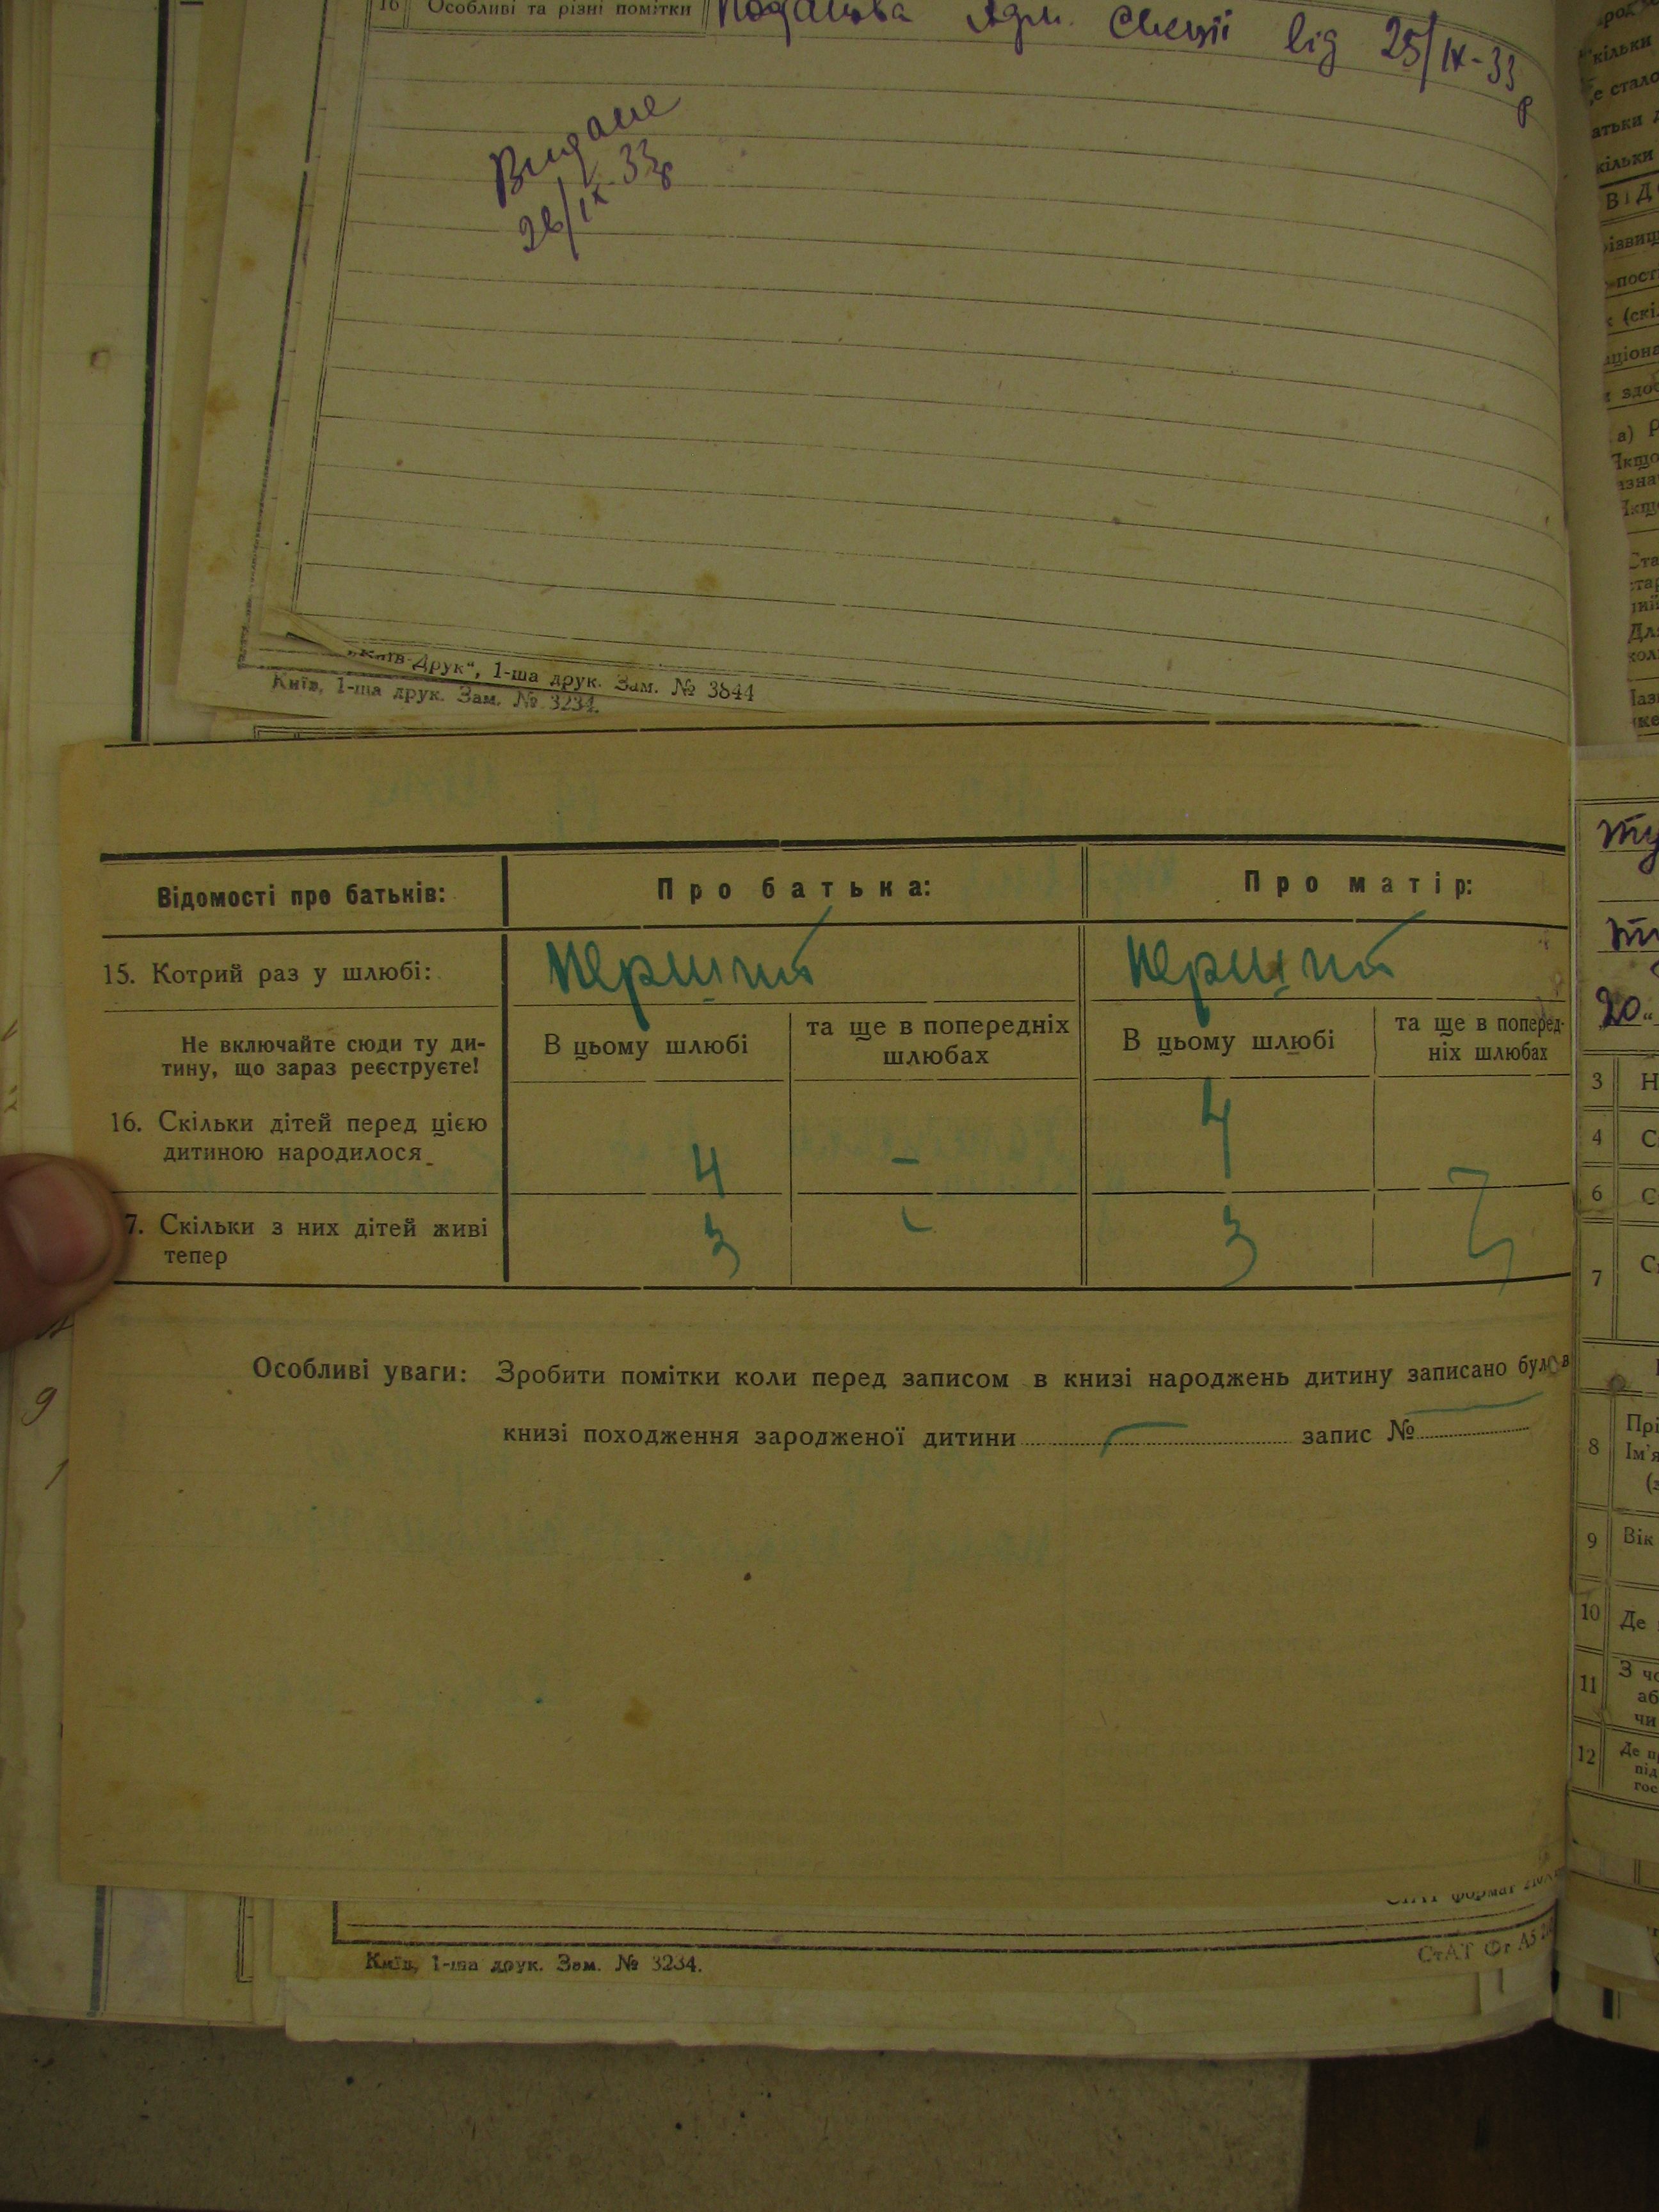 16 Особливі та різні помітки
Адм. Секції від 25/IX-33 р
Видане
26/IX-33р
„Київ-Друк“, 1-ша друк. Зам. № 3844
Київ, 1-ша друк. Зам. № 3234.
Відомості про батьків: Про батька: Про матір:
15. Котрий раз у шлюбі: перший перший
Не включайте сюди ту ди-
тину, що зараз реєструєте!
В цьому шлюбі
та ще в попередніх
шлюбах
В цьому шлюбі
та ще в поперед-
ніх шлюбах
16. Скільки дітей перед цією
дитиною народилося 4 - 4
7. Скільки з них дітей живі
тепер 3 - 3
Особливі уваги: Зробити помітки коли перед записом в книзі народжень дитину записано було в
книзі походження зародженої дитини запис №
СтАТ формат
Київ, 1-ша друк. Зам. № 3234.
СтАТ Фг А5
кільки
е стало
атьки
кільки
ВІД
а)
20
3 Н
4 С
6 С
7
8 Прі
Ім'я
9 Вік
10 Де
11 З
аб
чи
12 Де п
під
гос